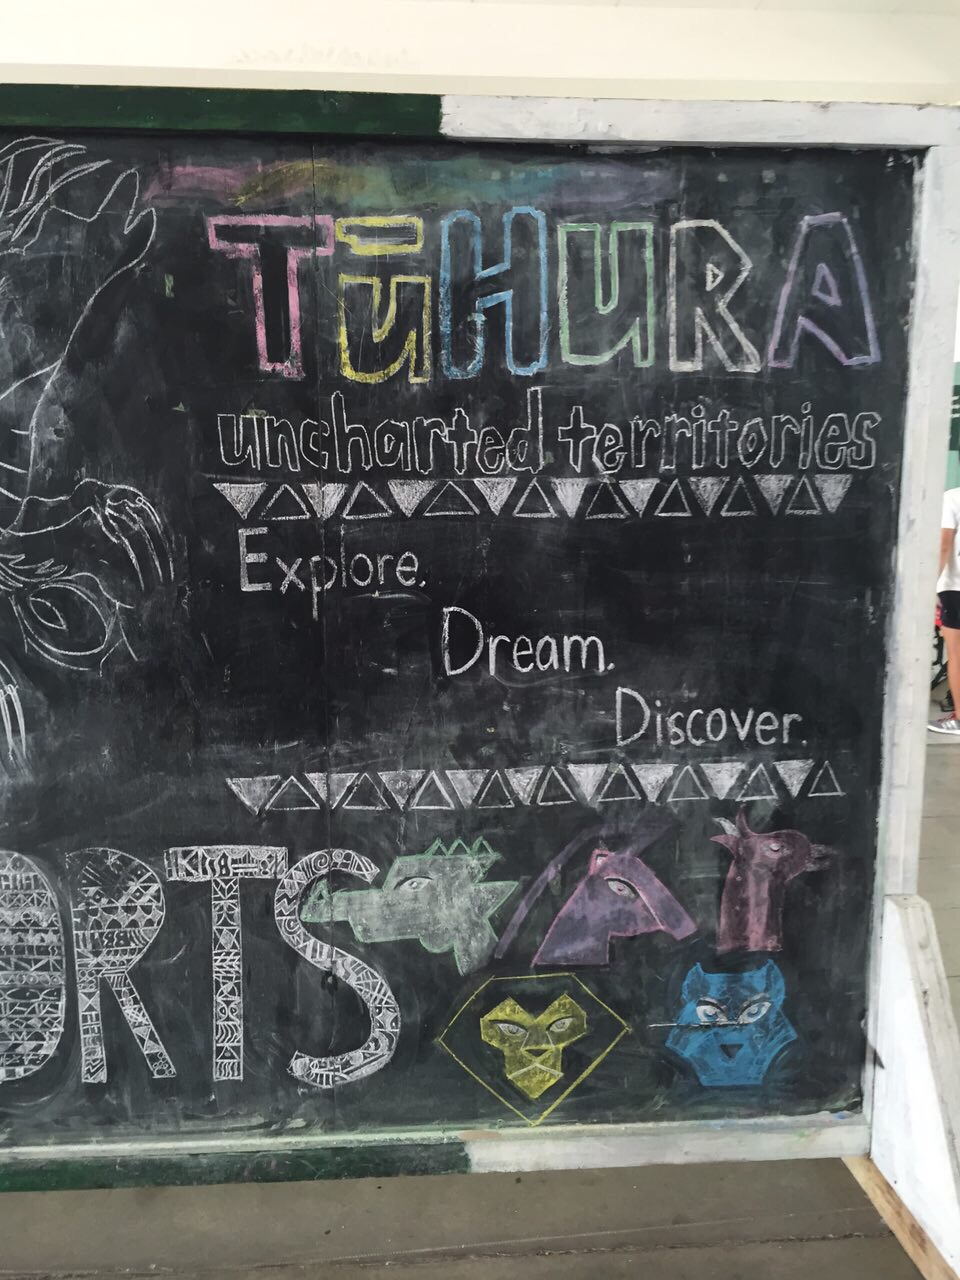 TŪHURA
uncharted territories
Explore.
Dream.
Discover.
ORTS